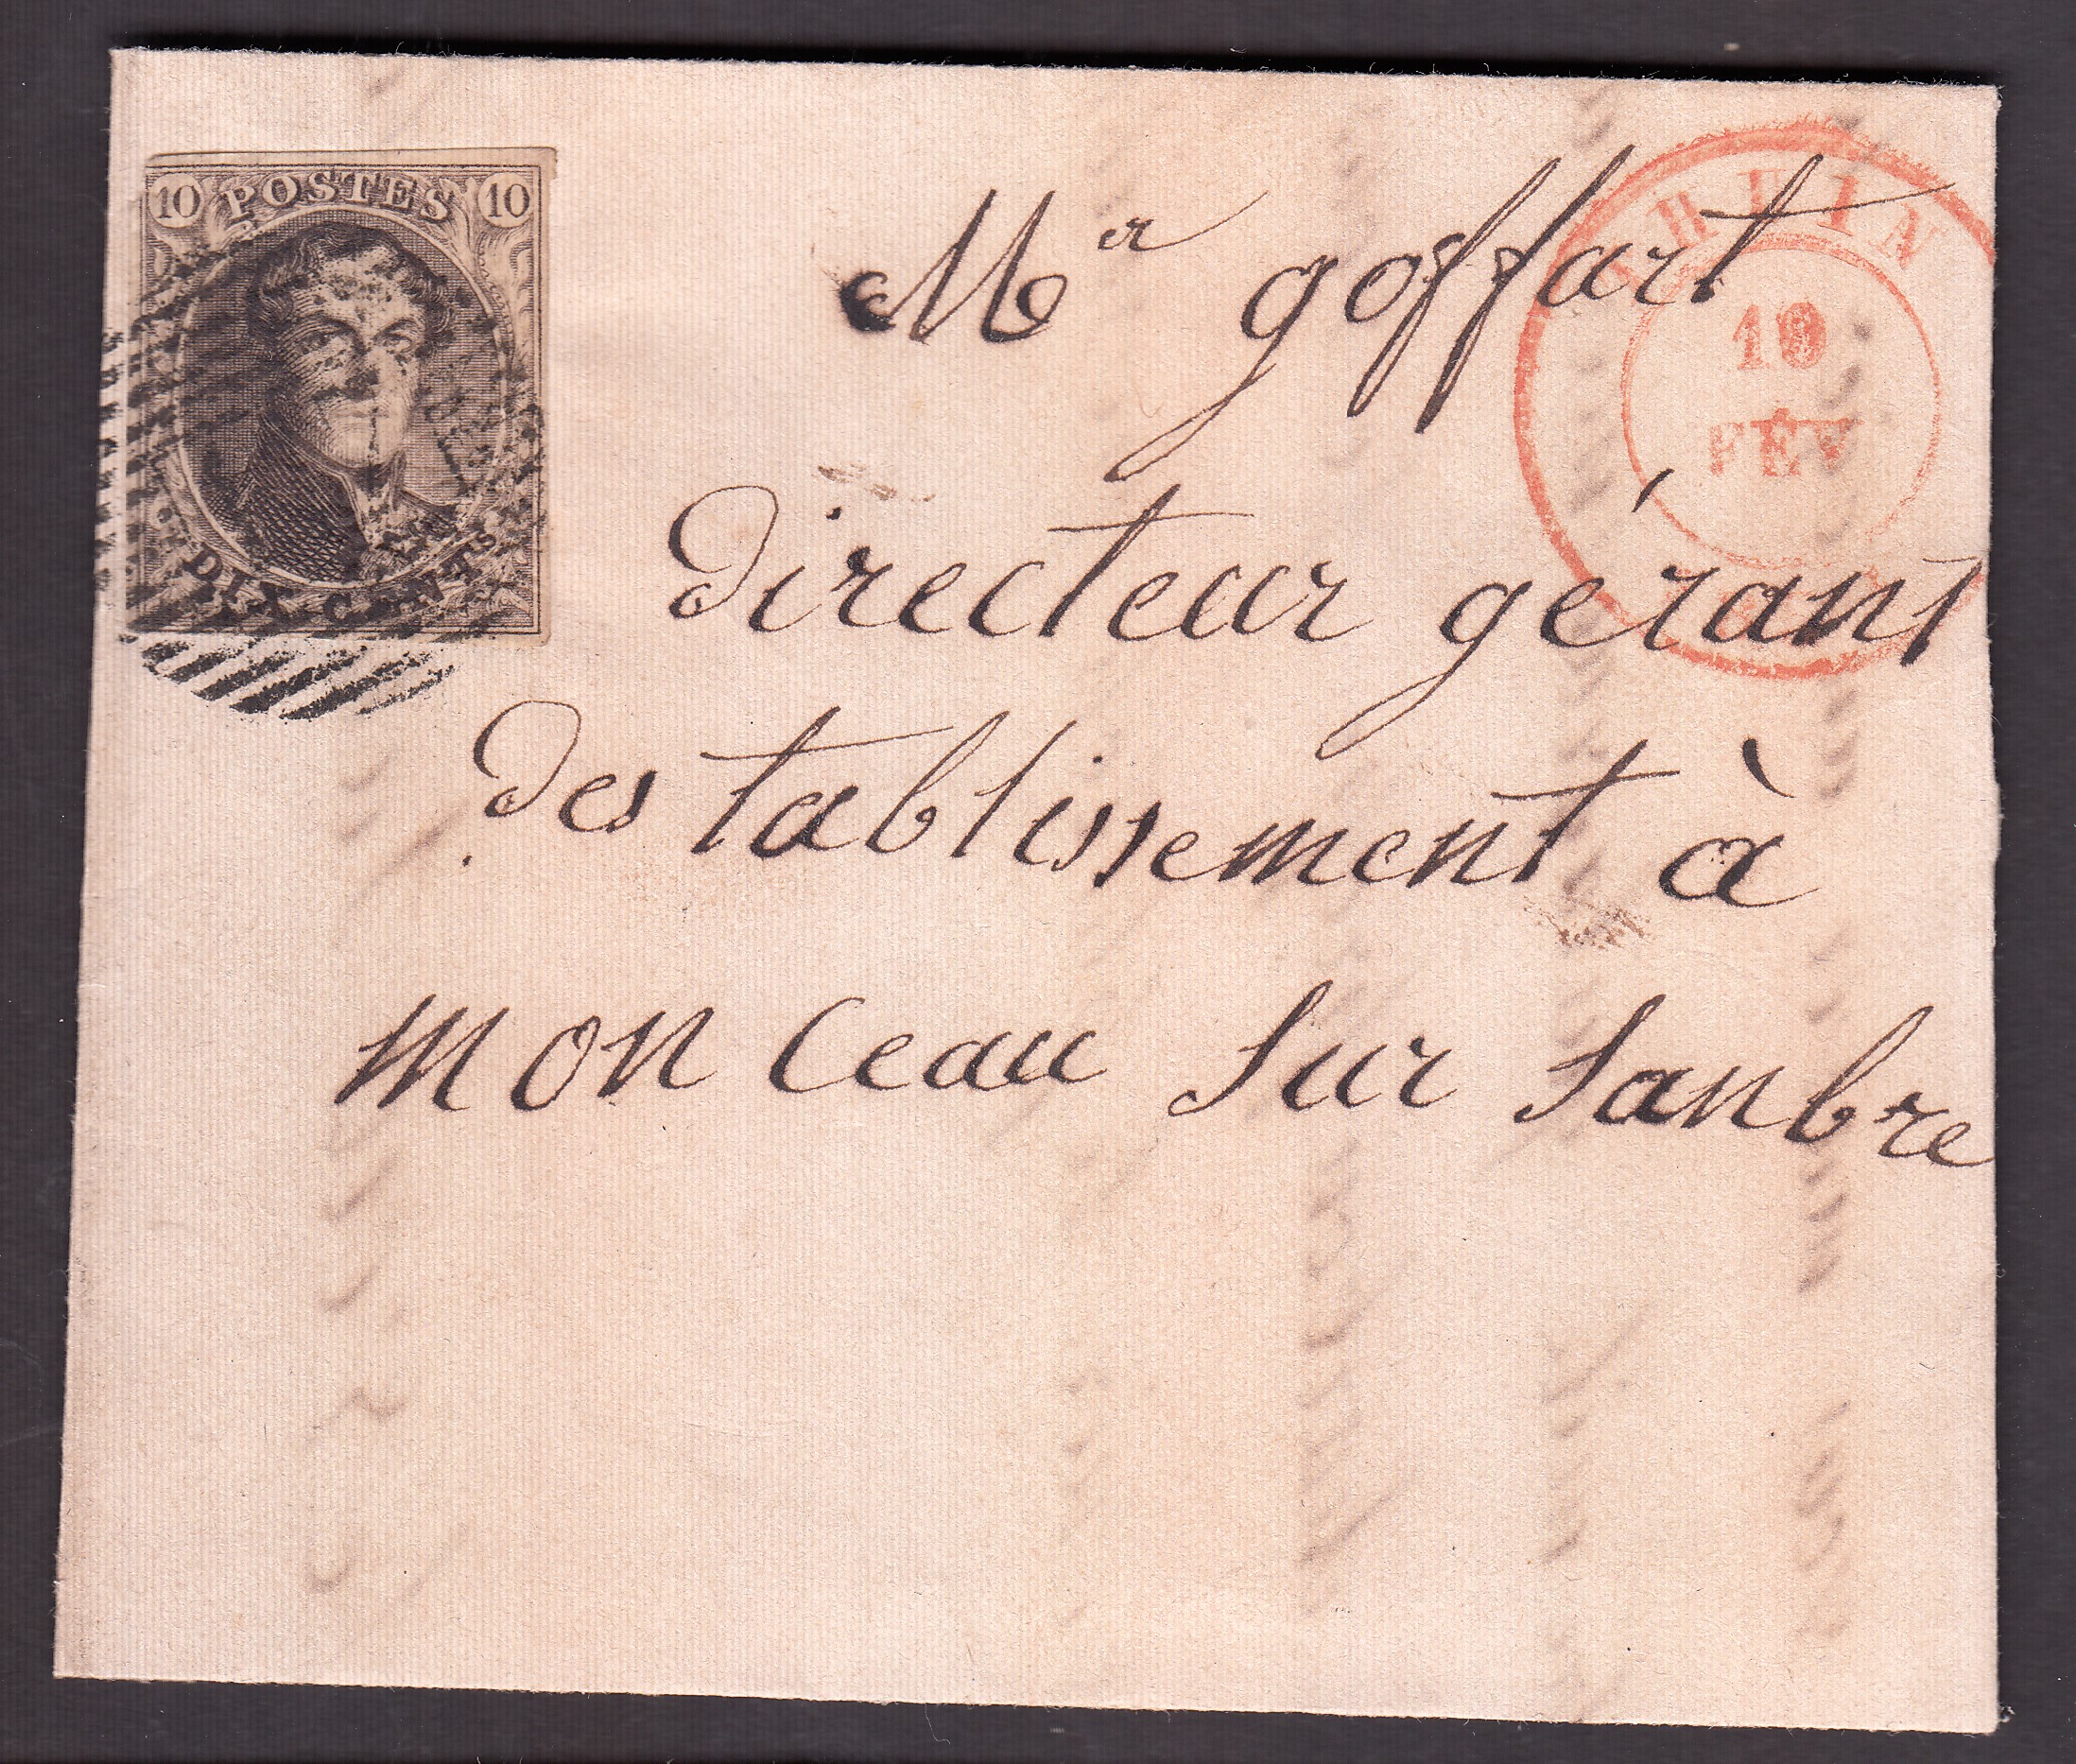 10 POSTES 10
DIX CENTS
10
FÉV
Mr goffart
Directeur gérant
des tablissement à
mon ceau sur sanbre